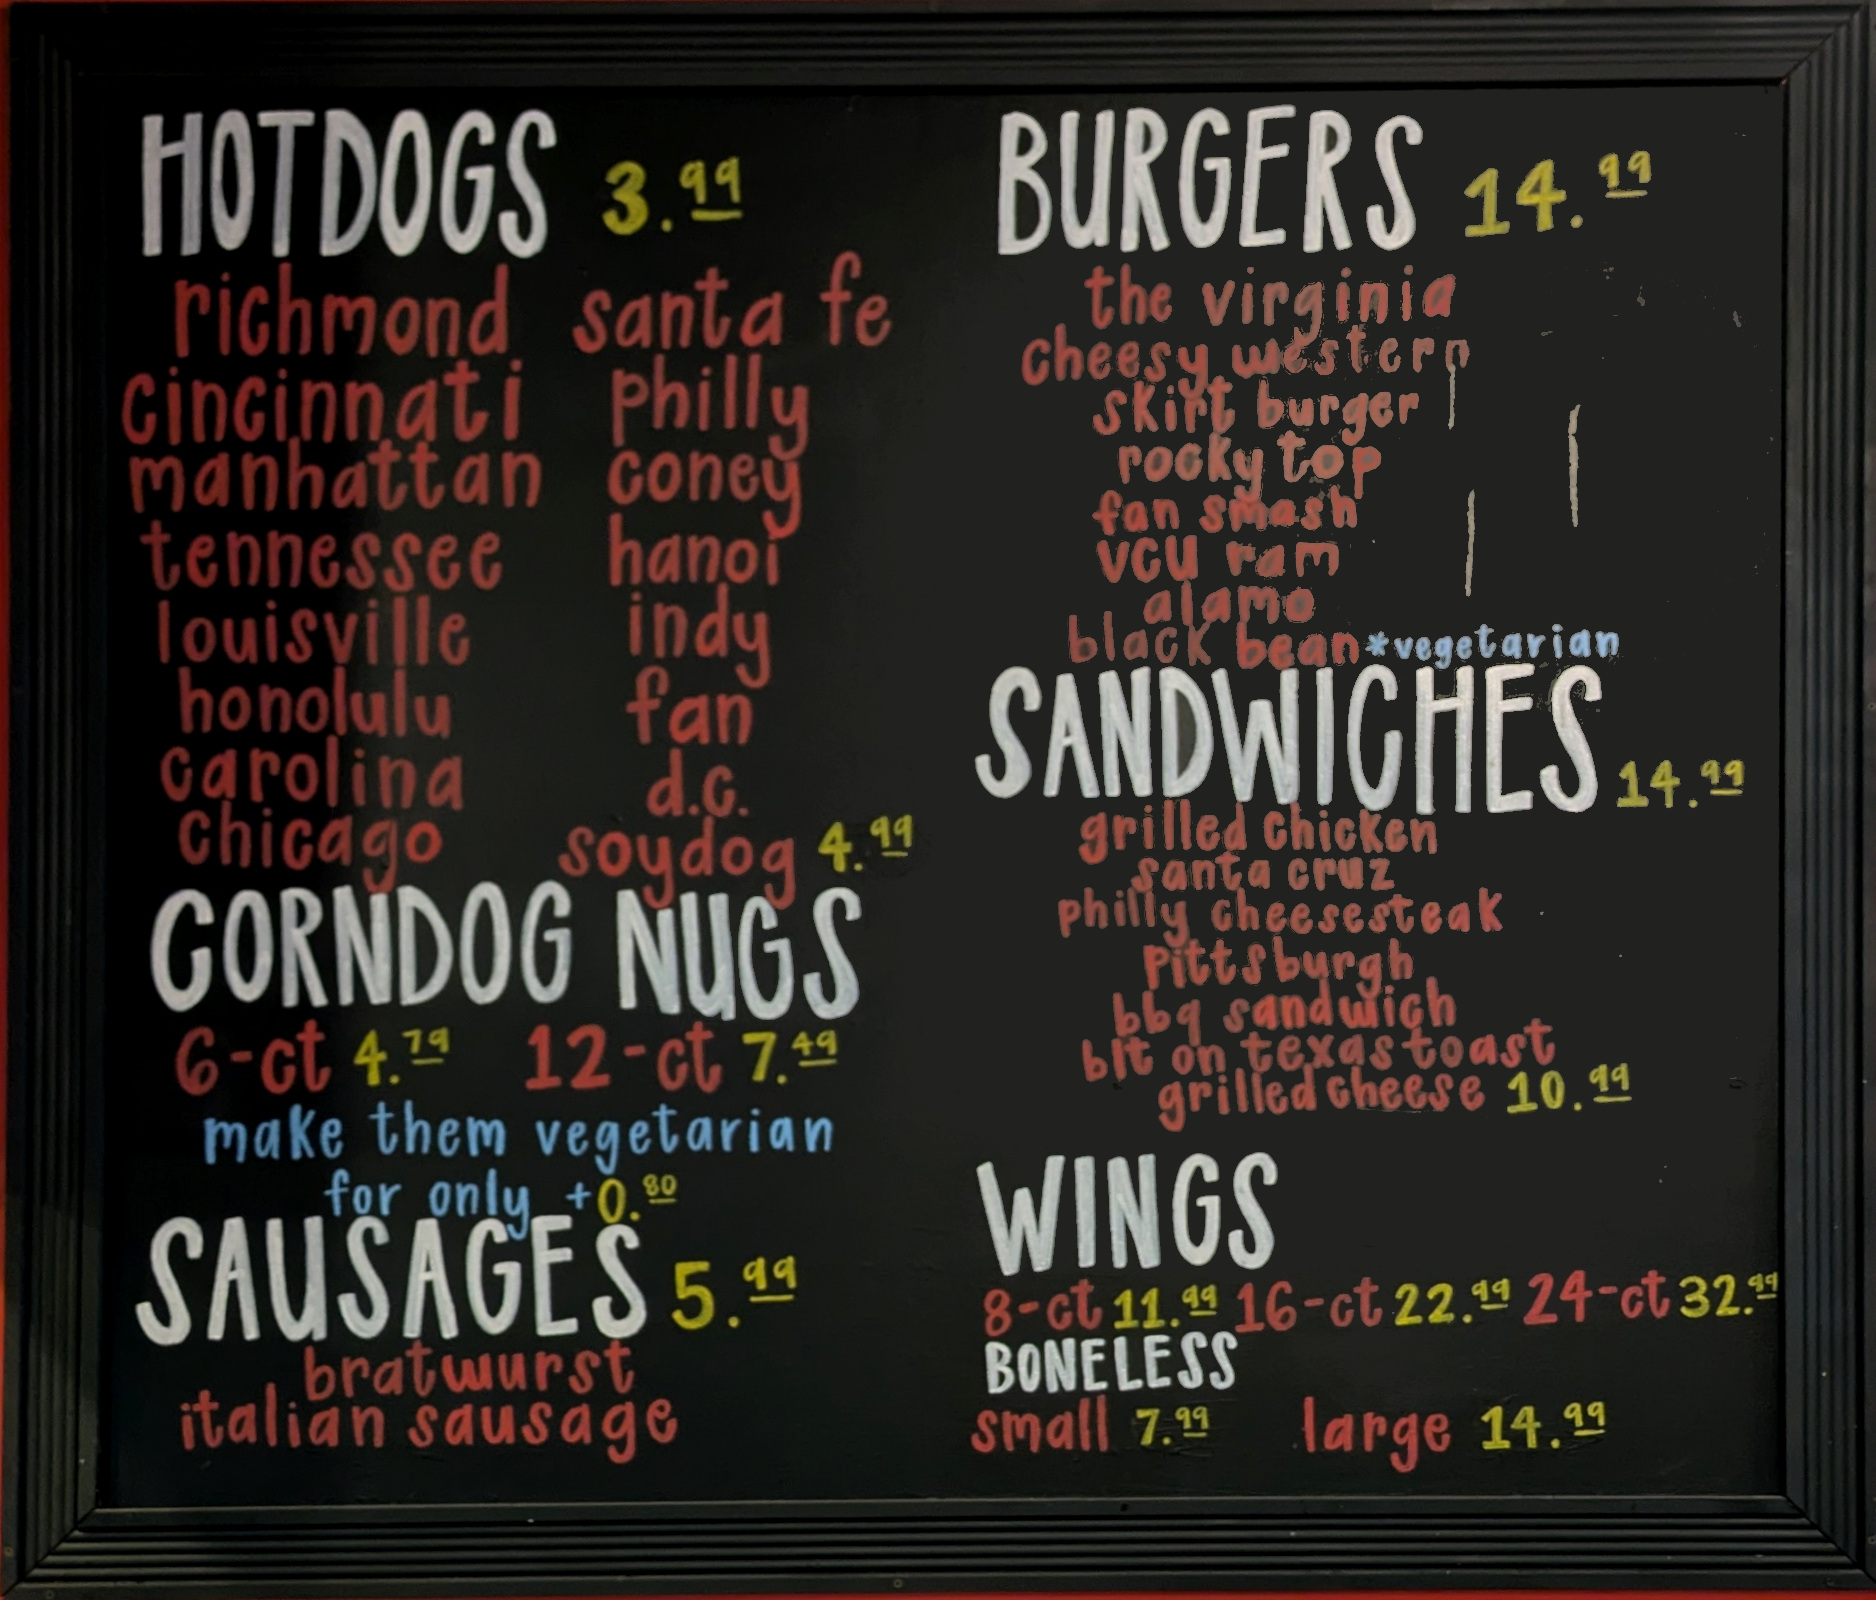 HOTDOGS 3.99
richmond santa fe
cincinnati philly
manhattan coney
tennessee hanoi
louisville indy
honolulu fan
carolina d.c.
chicago soydog 4.99
CORNDOG NUGS
6-ct 4.79 12-ct 7.49
make them vegetarian
for only +0.80
SAUSAGES 5.99
bratwurst
italian sausage
BURGERS 14.99
the virginia
cheesy western
skirt burger
rocky top
fan smash
vcu ram
alamo
black bean *vegetarian
SANDWICHES 14.99
grilled chicken
santa cruz
philly cheesesteak
pittsburgh
bbq sandwich
blt on texas toast
grilled cheese 10.99
WINGS
8-ct 11.99 16-ct 22.99 24-ct 32.99
BONELESS
small 7.99 large 14.99